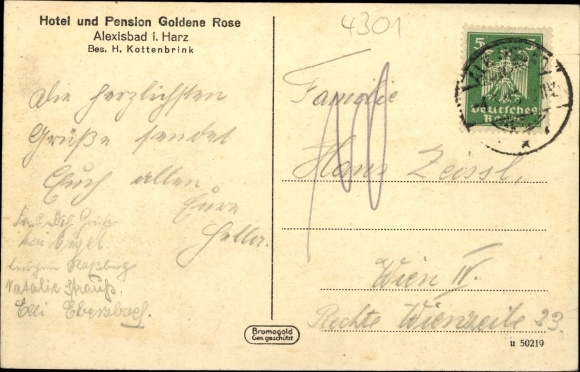 Hotel und Pension Goldene Rose
Alexisbad i. Harz
Bes. H. Kottenbrink
4301
5 5
Deutsches
Reich
Die herzlichsten
Grüße sendet
Euch allen
Eure
Heller.
Natalie Strauß.
Elli Ebersbach.
Familie
Hans Zeissl,
Wien IV.
Rechte Wienzeile 23.
Bromogold
Ges. geschützt
u 50219